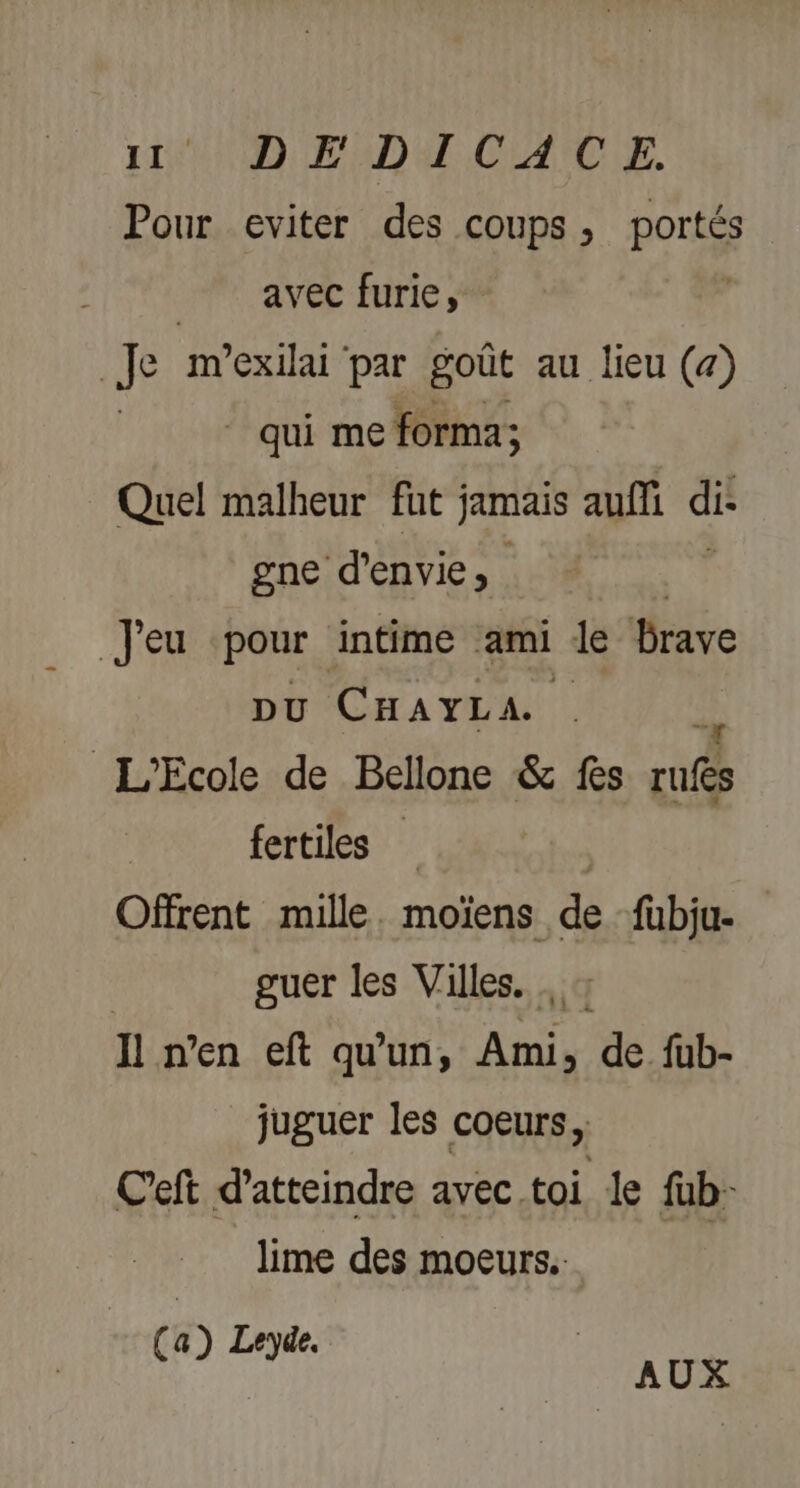 II DEDICACE.
Pour eviter des coups, portés
avec furie,
Je m'exilai par goût au lieu (a)
qui me forma;
Quel malheur fut jamais auſſi di-
gne d'envie,
J'eu pour intime ami le brave
DU CHAYLA.
L'Ecole de Bellone & ſes ruſes
fertiles
Offrent mille moïens de ſubju-
guer les Villes.
Il n'en eſt qu'un, Ami, de ſub-
juguer les coeurs,
C'eſt d'atteindre avec toi le ſub-
lime des moeurs.
(a) Leyde.
AUX